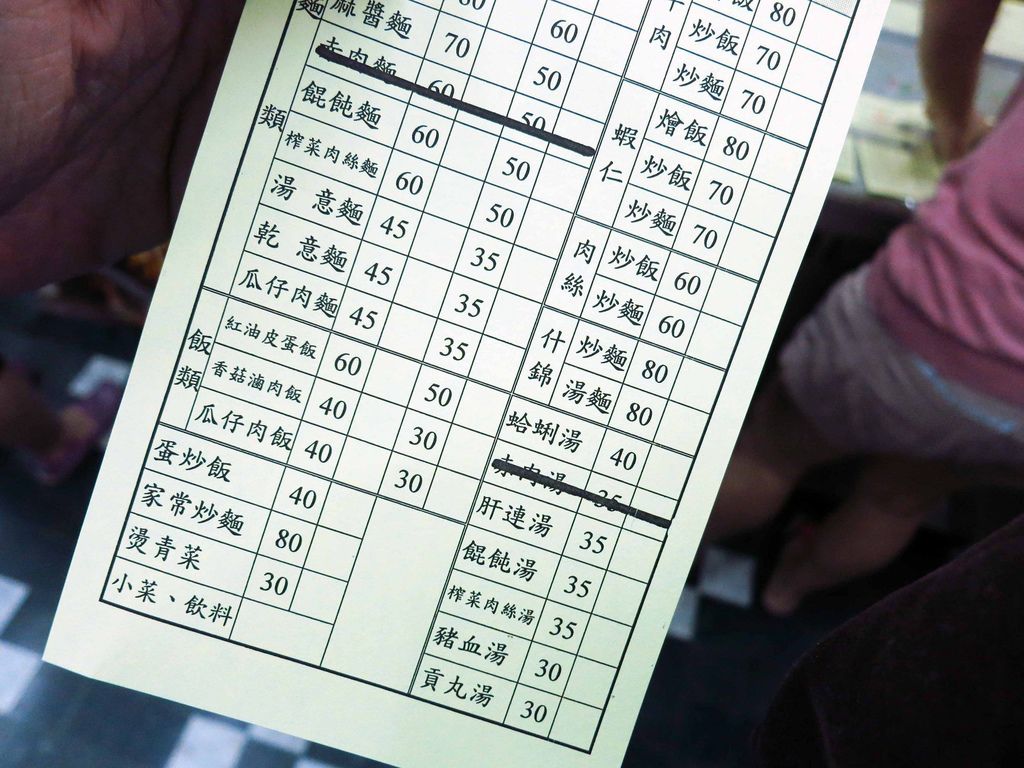 麵類
麻醬麵 70 60
赤肉麵 60 50
餛飩麵 60 50
榨菜肉絲麵 60 50
湯 意麵 45 35
乾 意麵 45 35
瓜仔肉麵 45 35
飯類
紅油皮蛋飯 60 50
香菇滷肉飯 40 30
瓜仔肉飯 40 30
蛋炒飯 40
家常炒麵 80
燙青菜 30
小菜、飲料
牛肉
飯 80
炒飯 70
炒麵 70
蝦仁
燴飯 80
炒飯 70
炒麵 70
肉絲
炒飯 60
炒麵 60
什錦
炒麵 80
湯麵 80
蛤蜊湯 40
赤肉湯 35
肝連湯 35
餛飩湯 35
榨菜肉絲湯 35
豬血湯 30
貢丸湯 30